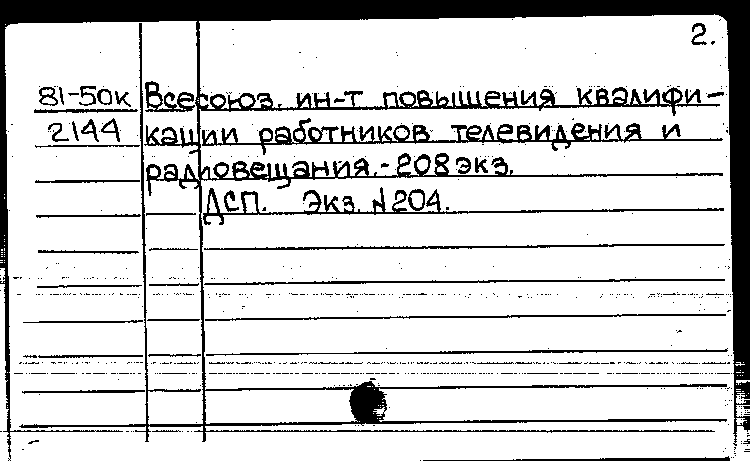 2.
81-50к Всесоюз. ин-т повышения квалифи-
2144 кации работников телевидения и
радиовещания.-208 экз.
ДСП. Экз. №204.